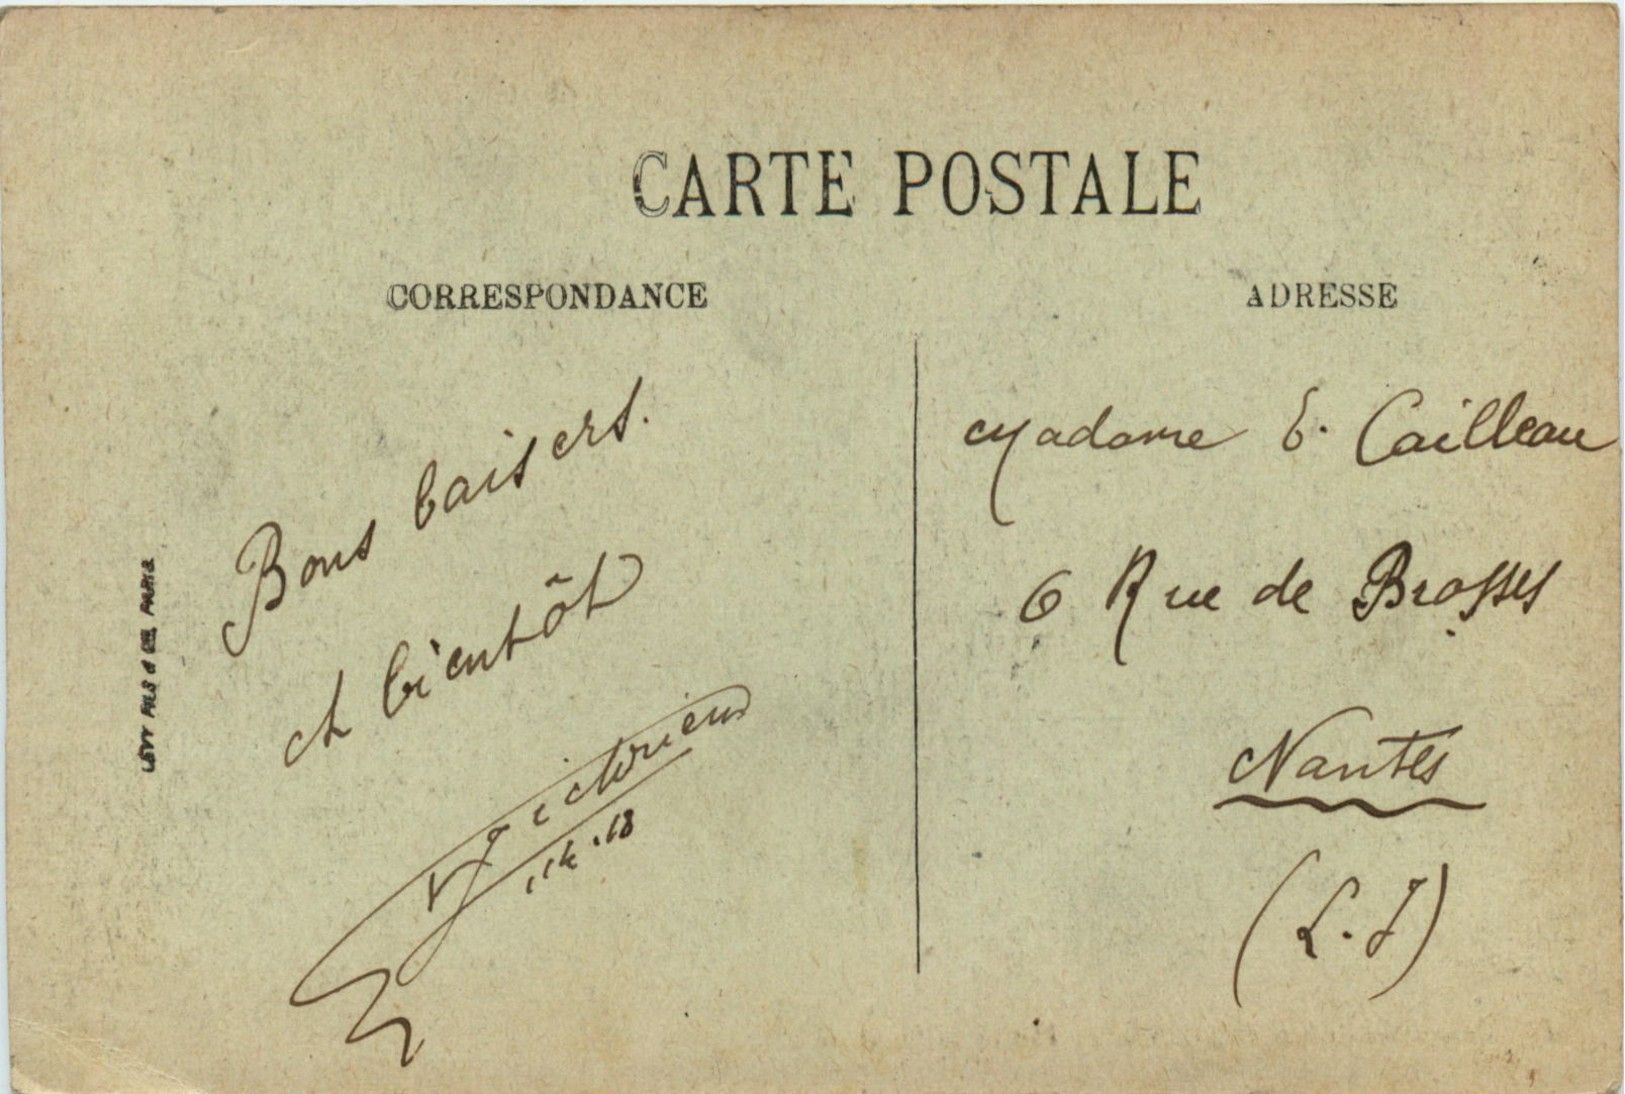 CARTE POSTALE
CORRESPONDANCE
Bons baisers.
et bientôt
11 4 • 18
LÉVY FILS & CIE, PARIS
ADRESSE
Madame E. Cailleau
6 Rue de Brosses
Nantes
(L. I)